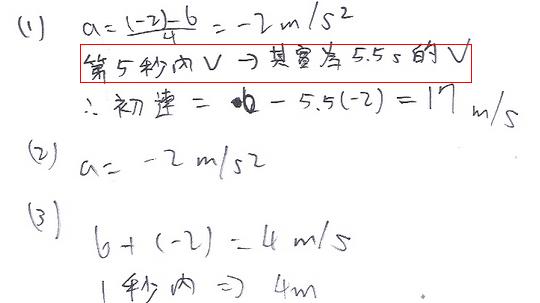 (1) a = (-2)-6/4 = -2 m/s²
第5秒內V → 其實為5.5s的V
∴初速 = 6 - 5.5(-2) = 17 m/s
(2) a = -2 m/s2
(3)
6+(-2) = 4 m/s
1秒內 ⇒ 4m